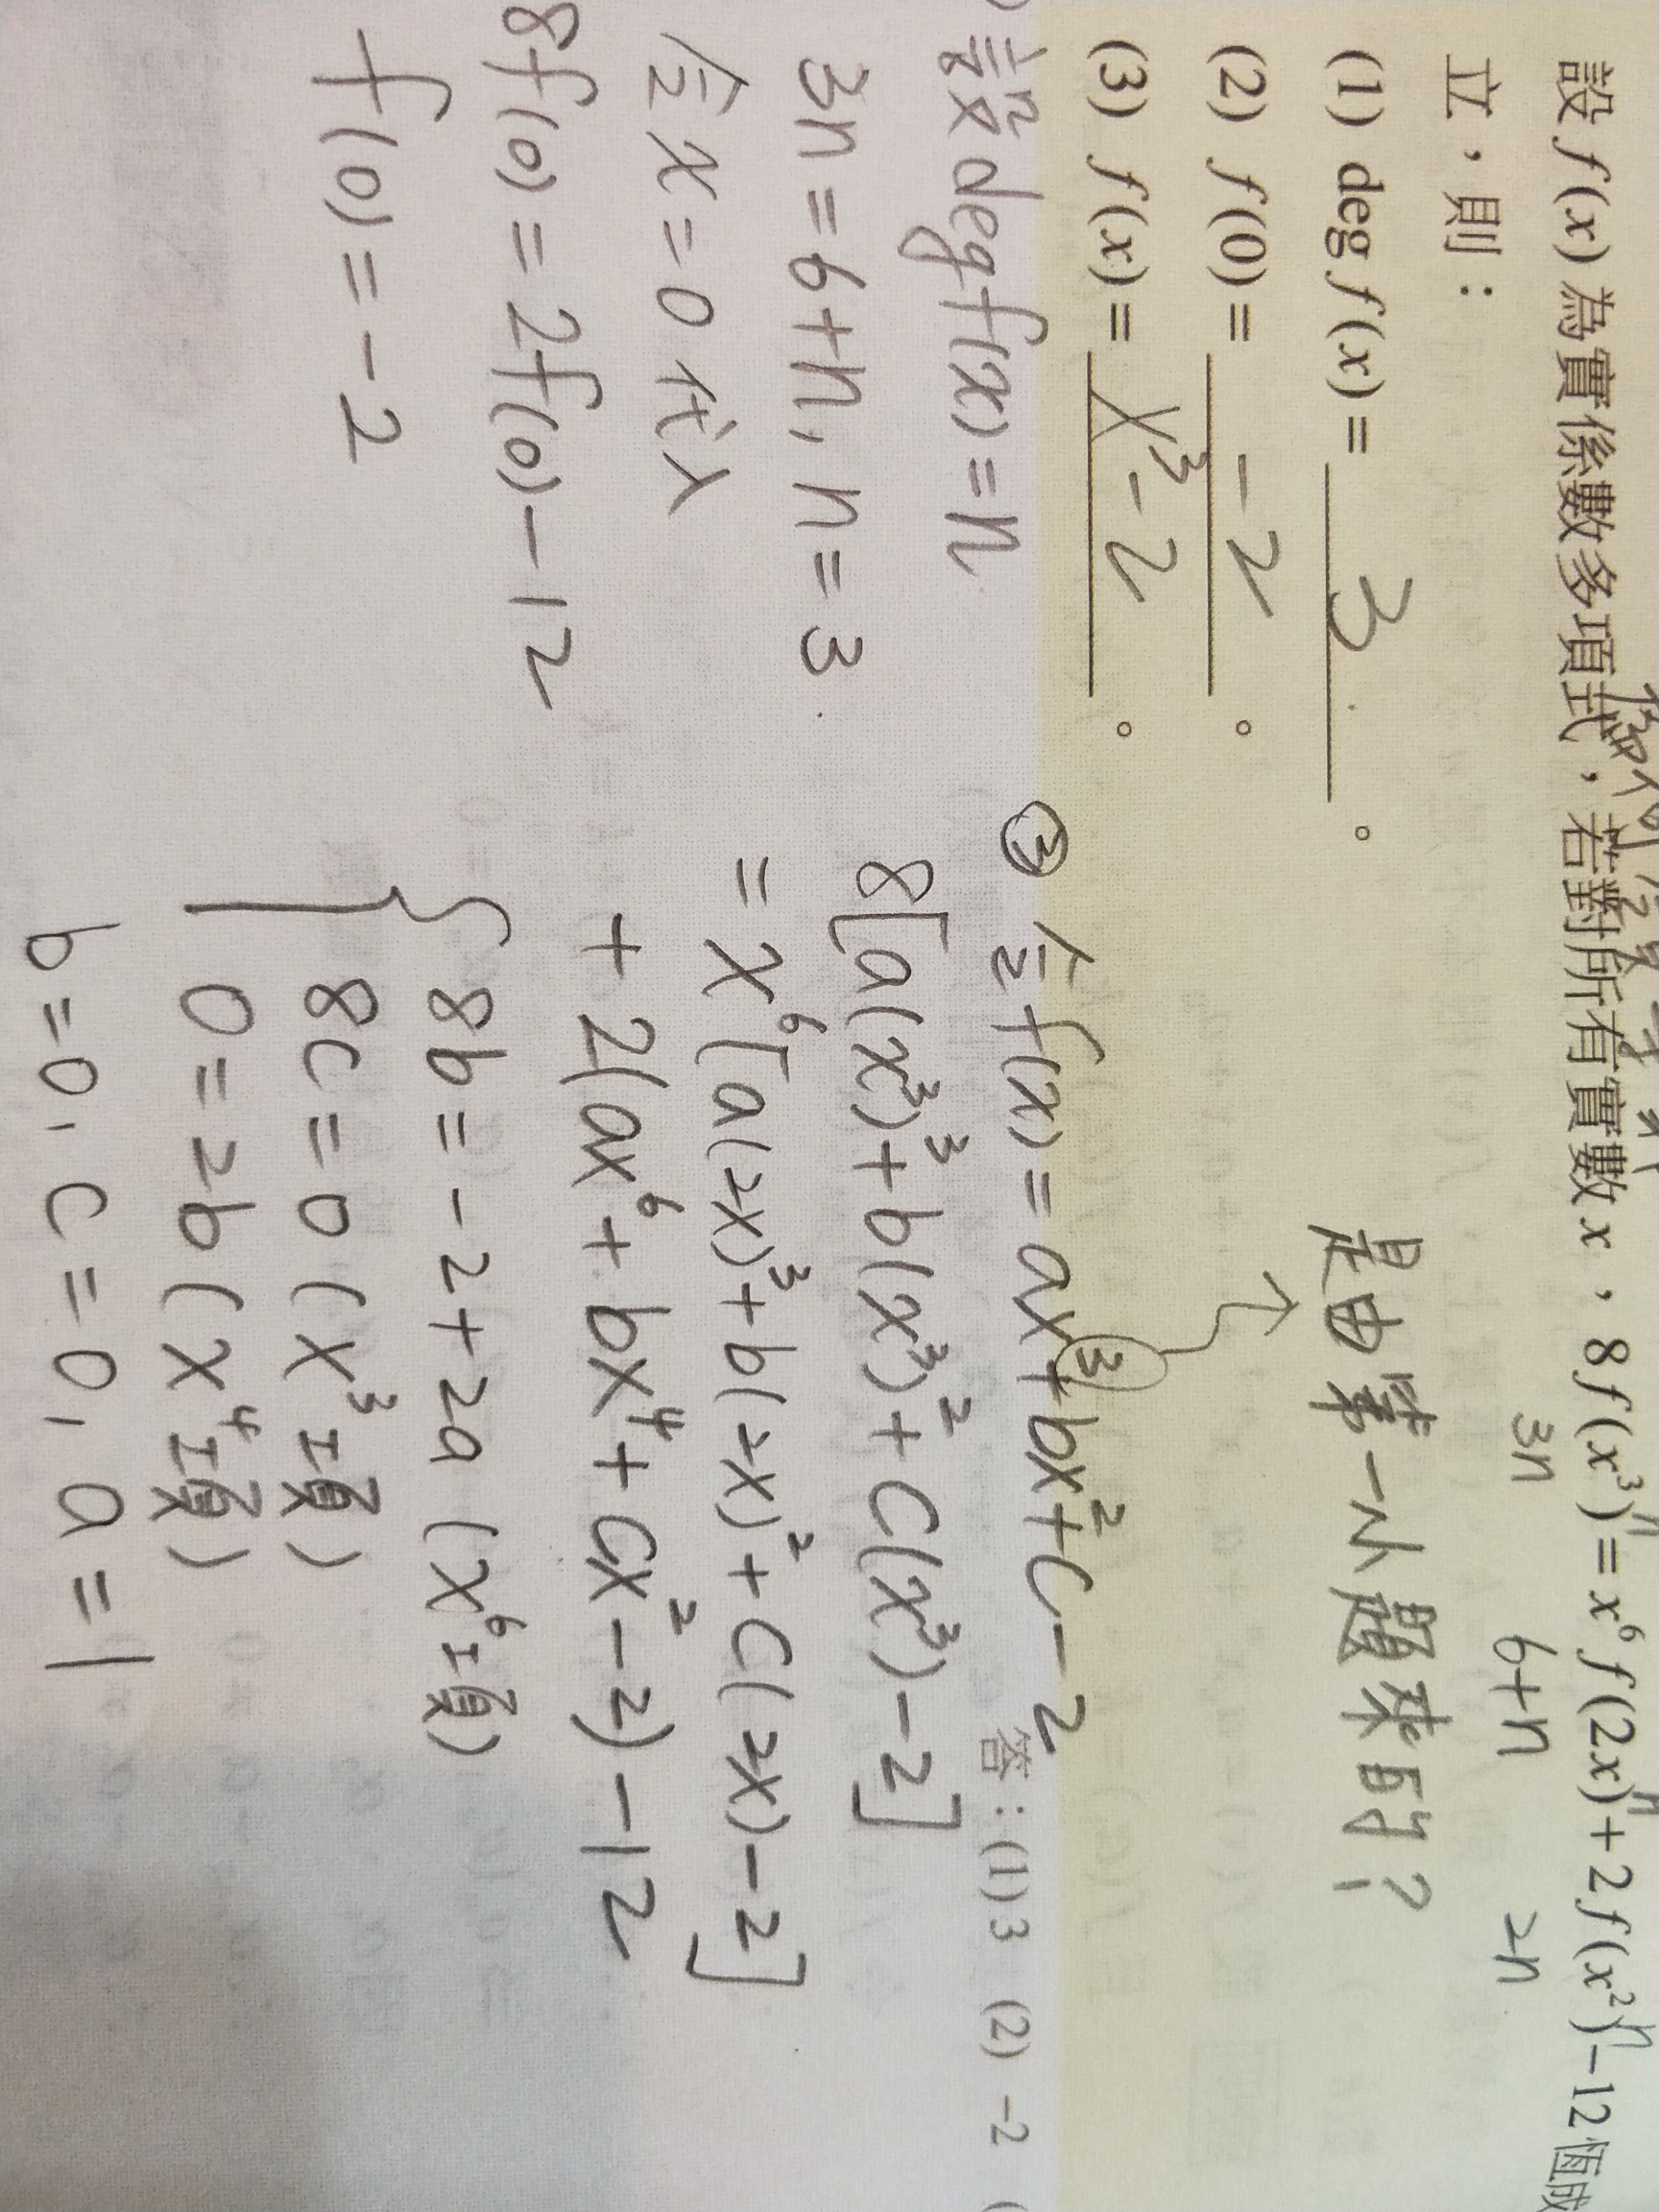 設 f(x) 為實係數多項式，若對所有實數 x，8f(x³)ⁿ = x⁶f(2x)ⁿ + 2f(x²)ⁿ − 12 恆成
3n 6+n 2n
立，則：
(1) deg f(x) = 3 。
(2) f(0) = −2 。
(3) f(x) = x³−2 。
是由第一小題來的？
答：(1) 3 (2) −2 (
設 deg f(x) = n
3n = 6+n, n = 3
令 x = 0 代入
8f(0) = 2f(0) − 12
f(0) = −2
③ 令 f(x) = ax³ + bx² + c − 2
8[a(x³)³ + b(x³)² + c(x³) − 2]
= x⁶[a(2x)³ + b(2x)² + c(2x) − 2]
+ 2(ax⁶ + bx⁴ + cx² − 2) − 12
8b = −2 + 2a (x⁶項)
8c = 0 (x³項)
0 = 2b (x⁴項)
b = 0, c = 0, a = 1